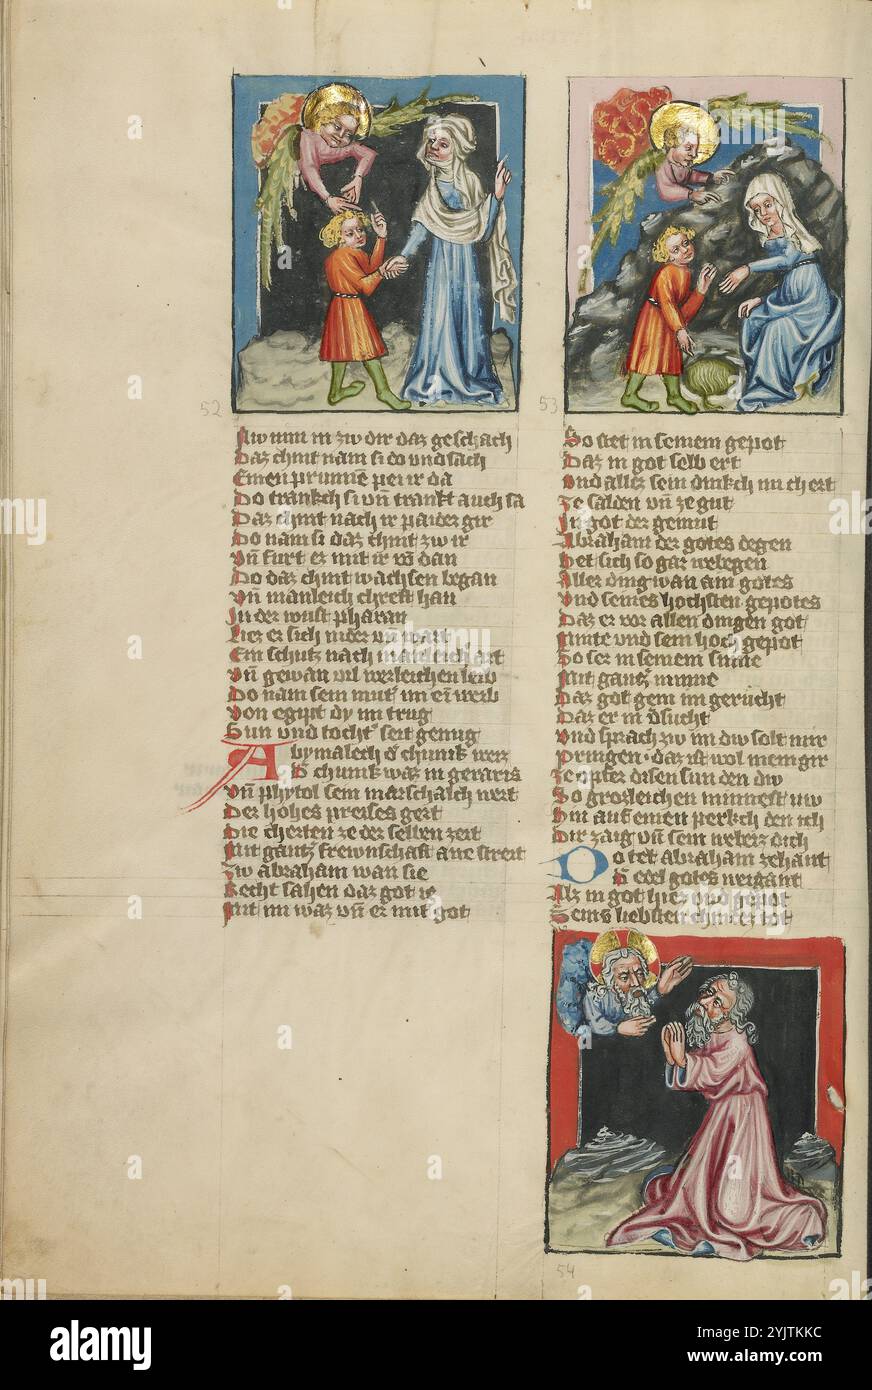 52
Nw nim in zw dir daz geschach
Daz chint nam si do und sach
Einen prunne pei ir da
Do trankch si vn̄ trankt auch sa
Daz chint nach ir paider gir
Do nam si daz chint zw ir
Vn̄ furt er mit ir vō dan
Do daz chint wachsen began
Vn̄ manleich chreft han
In der wust pharan
Liez er sich nider vn̄ wart
Ein schutz nach manleich art
Vn̄ gewan vil werleichen leib
Do nam sein mut' im ein weib
Von egipt dy im trug
Sun und tocht' seit genug
Abymalech d' chunik weiz
D' chunik waz in geraris
Vn̄ phytol sein marschalch wert
Der hohes preises gert
Die cherten ze der selben zeit
Mit gantz' frewnschaft ane streit
Zw abraham wan sie
Recht sahen daz got ie
Mit im waz vn̄ er mit got
53
So stet in seinem gepot
Daz in got selb ert
Vnd aller sein dinkch im chert
Ze salden vn̄ ze gut
In got der gemut
Abraham der gotes degen
Het sich so gar webegen
Aller ding wan am gotes
Vnd seines hochsten gepotes
Daz er vor allen dingen got
Mint und sein hoch gepot
So ser in seinem sinne
Mit gantz' minne
Daz got gern im gerucht
Daz er in v'sucht
Vnd sprach zw im dw solt mir
Pringen daz ist wol mein gir
Ze opfer disen sun den dw
So grozleichen minnest nw
Hin auf einen perkch den ich
Dir zaig vn̄ sein weiz dich
Do tet abraham zehant
D' edel gotes weigant
Alz im got hiez und gepot
Seins liebsten chindez tot
54
alamy
a
Image ID: 2YJTKKC
www.alamy.com